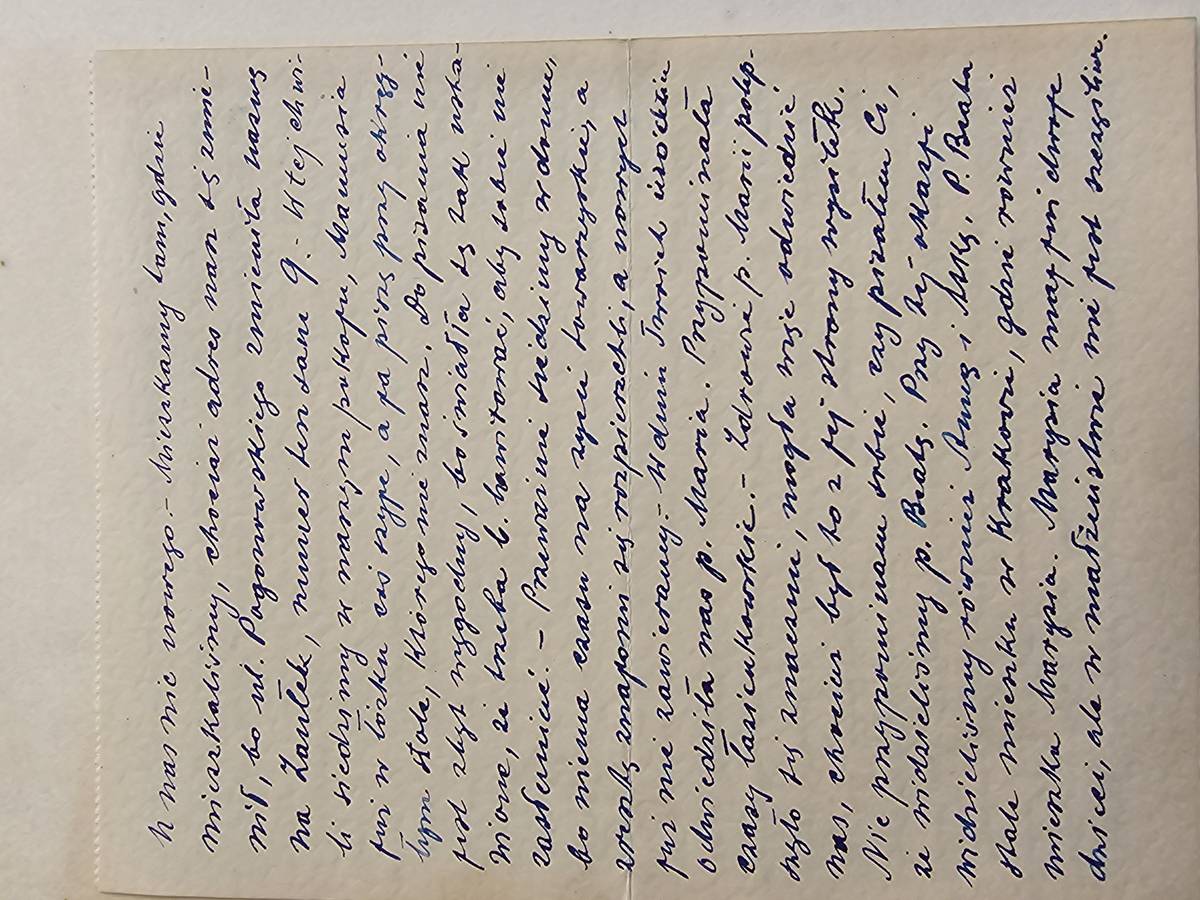 U nas nic nowego.- Mieszkamy tam, gdzie
mieszkaliśmy, chociaż adres nasz się zmie-
nił, bo ul. Pogonowskiego zmieniła nazwę
na Zaułek, numer ten sam 9.- W tej chwi-
li siedzimy w naszym pokoju, Mamusia
już w łóżku coś szyje, a ja piszę przy okrąg-
łym stole, którego nie znasz. Do pisania nie
jest zbyt wygodny, bo światła są tak usta-
wione, że trzeba b. lawirować, aby sobie nie
zasłonić.- Prawie nie siedzimy w domu,
bo niema czasu na życie towarzyskie, a
zresztą znajomi się rozpierzchli, a nowych
już nie zawieramy.- W dniu Twoich urodzin
odwiedziła nas p. Maria. Przypominała
czasy Łazienkowskie.- Zdrowie p. Marii polep-
szyło się znacznie, mogła więc odwiedzić
nas, chociaż był to z jej strony wysiłek.
Nie przypominam sobie, czy pisałem Ci,
że widzieliśmy p. Beatę. Przy tej okazji
widzieliśmy również Annę i P. Beata
stale mieszka w Krakowie, gdzie również
mieszka Marysia. Marysia ma już dwoje
dzieci, ale w małżeństwie nie jest szczęśliwa.